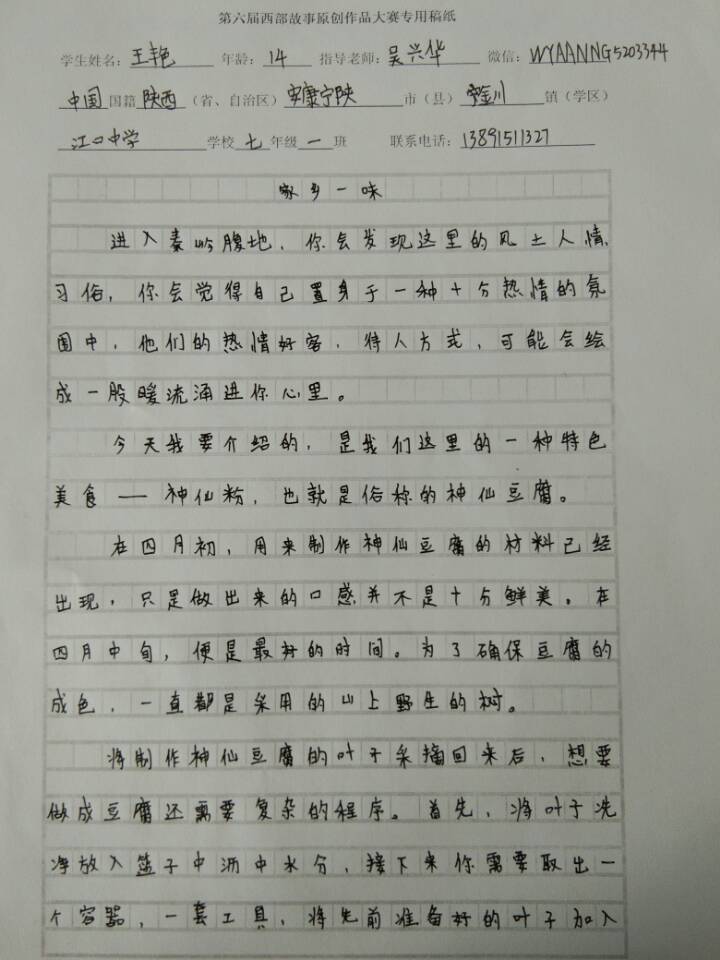 第六届西部故事原创作品大赛专用稿纸
学生姓名：王艳 年龄：14 指导老师：吴兴华 微信：WYAANNG5203344
中国 国籍 陕西（省、自治区）安康宁陕 市（县）金川 镇（学区）
江口中学 学校 七 年级 一 班 联系电话：13891511327
家乡一味
进入秦岭腹地，你会发现这里的风土人情，
习俗，你会觉得自己置身于一种十分热情的氛
围中，他们的热情好客，待人方式，可能会绘
成一股暖流涌进你心里。
今天我要介绍的，是我们这里的一种特色
美食——神仙粉，也就是俗称的神仙豆腐。
在四月初，用来制作神仙豆腐的材料已经
出现，只是做出来的口感并不是十分鲜美。在
四月中旬，便是最好的时间。为了确保豆腐的
成色，一直都是采用的山上野生的树。
将制作神仙豆腐的叶子采摘回来后，想要
做成豆腐还需要复杂的程序。首先，将叶子洗
净放入篮子中沥中水分，接下来你需要取出一
个容器，一套工具，将先前准备好的叶子加入